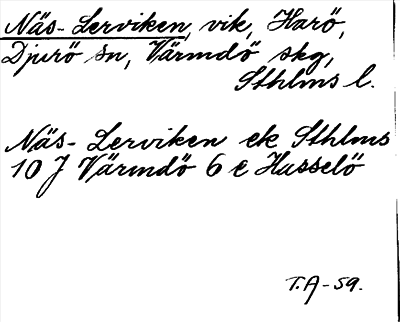 Näs-Lerviken, vik, Harö,
Djurö sn, Värmdö skg,
Sthlms l.
Näs-Lerviken ek Sthlms
10 J Värmdö 6 e Hasselö
T.A-59.